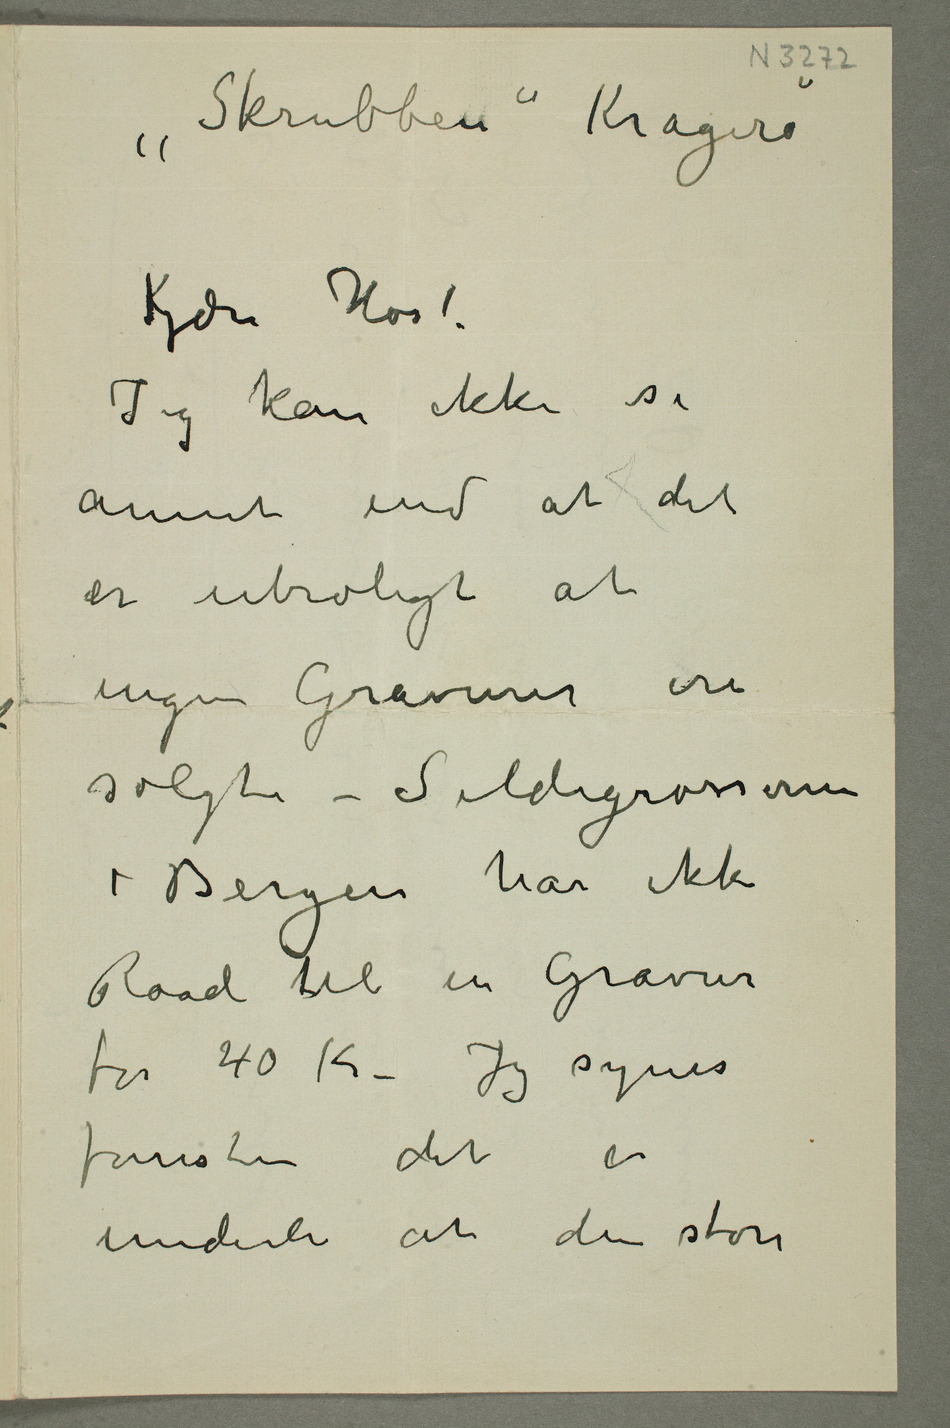 N 3272
„Skrubben“ Kragerö
Kjære Høst.
Jeg kan ikke se
annet end at det
er utroligt at
ingen Gravurer ere
solgte – Sildegrossererne
i Bergen har ikke
Raad til en Gravur
for 40 Kr – Jeg synes
det er
underli at den store